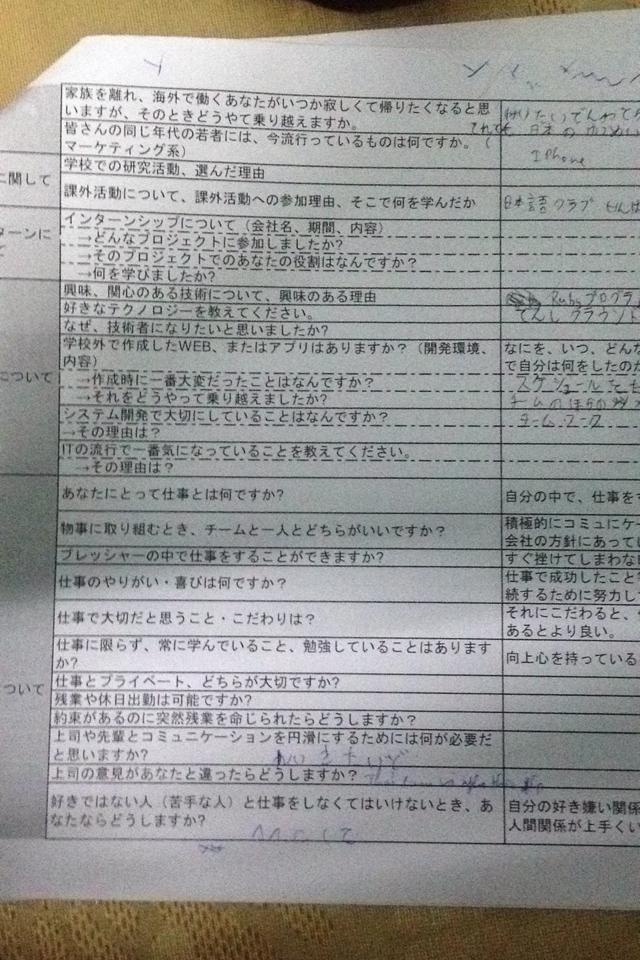 家族を離れ、海外で働くあなたがいつか寂しくて帰りたくなると思
いますが、そのときどうやて乗り越えますか。
皆さんの同じ年代の若者には、今流行っているものは何ですか。（
マーケティング系）
IPhone
に関して
学校での研究活動、選んだ理由
課外活動について、課外活動への参加理由、そこで何を学んだか
日本語クラブ
ターンに
インターンシップについて（会社名、期間、内容）
→どんなプロジェクトに参加しましたか?
→そのプロジェクトでのあなたの役割はなんですか？
→何を学びましたか?
興味、関心のある技術について、興味のある理由
Rubyプログラ
好きなテクノロジーを教えてください。
なぜ、技術者になりたいと思いましたか？
について
学校外で作成したWEB、またはアプリはありますか？（開発環境、
内容）
なにを、いつ、どんな
で自分は何をしたのか
→作成時に一番大変だったことはなんですか？
→それをどうやって乗り越えましたか?
システム開発で大切にしていることはなんですか？
チームワーク
→その理由は？
ITの流行で一番気になっていることを教えてください。
→その理由は？
あなたにとって仕事とは何ですか?
自分の中で、仕事を
物事に取り組むとき、チームと一人とどちらがいいですか？
積極的にコミュにケー
会社の方針にあってい
プレッシャーの中で仕事をすることができますか?
すぐ挫けてしまわな
仕事のやりがい・喜びは何ですか？
仕事で成功したこと
続するために努力し
仕事で大切だと思うこと・こだわりは？
それにこだわると、
あるとより良い。
仕事に限らず、常に学んでいること、勉強していることはあります
か?
向上心を持っている
ついて
仕事とプライベート、どちらが大切ですか?
残業や休日出勤は可能ですか?
約束があるのに突然残業を命じられたらどうしますか？
上司や先輩とコミュニケーションを円滑にするためには何が必要だ
と思いますか?
上司の意見があなたと違ったらどうしますか？
好きではない人（苦手な人）と仕事をしなくてはいけないとき、あ
なたならどうしますか?
自分の好き嫌い関係
人間関係が上手くい